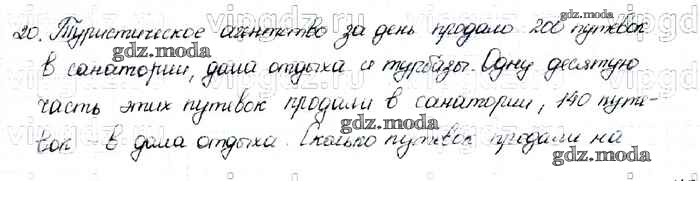 20. Туристическое агентство за день продало 200 путевок
в санатории, дома отдыха и турбазы. Одну десятую
часть этих путевок продали в санатории, 140 путе-
вок в дома отдыха. Сколько путевок продали на
gdz.moda
gdz.moda
gdz.moda
gdz.moda
gdz.moda